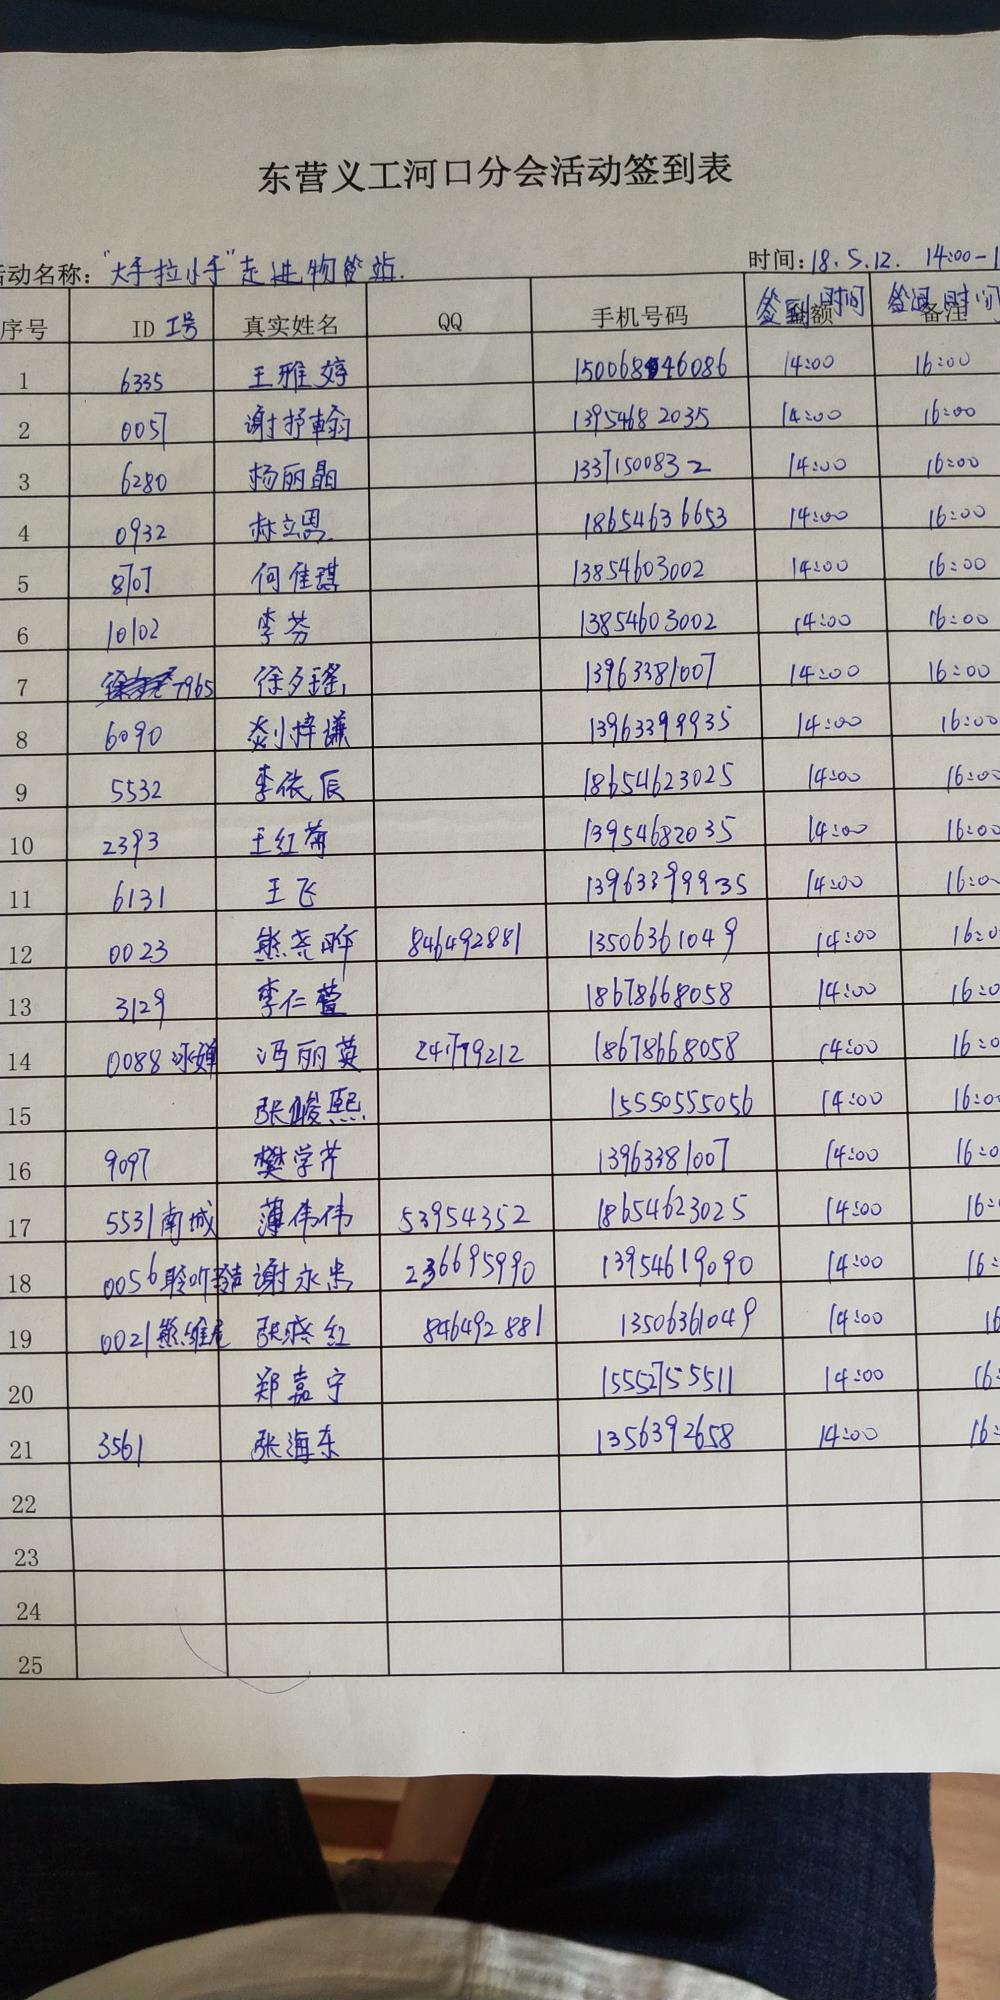 东营义工河口分会活动签到表
活动名称："大手拉小手"走进物 站. 时间:18.5.12. 14:00-1
序号 ID 工号 真实姓名 QQ 手机号码 签到时间 备注 时间
1 6335 王雅婷 14:00 16:00
2 0057 谢抒翰 13954682035 14:00 16:00
3 6280 杨丽晶 13371500832 14:00 16:00
4 0932 林立恩 18654636653 14:00 16:00
5 8707 何佳琪 13854603002 14:00 16:00
6 10102 李芬 13854603002 14:00 16:00
7 7965 徐夕瑶 13963381007 14:00 16:00
8 6090 梓谦 13963399935 14:00 16:00
9 5532 李依辰 18654623025 14:00 16:00
10 2393 王红菊 13954682035 14:00 16:00
11 6131 王飞 13963399935 14:00 16:00
12 0023 熊尧昕 846492881 13506361049 14:00 16:0
13 3129 李仁萱 18678668058 14:00 16:0
14 0088 冯丽英 241779212 18678668058 14:00 16:0
15 张峻熙 15550555056 14:00 16:0
16 9097 樊学芹 13963381007 14:00 16:0
17 5531南城 薄伟伟 53954352 18654623025 14:00 16:
18 0056聆听 谢永忠 236695990 13954619090 14:00 16:
19 0021熊维尼 张晓红 846492881 13506361049 14:00 16
20 郑嘉宁 15552755511 14:00 16:
21 3561 张海东 1356392658 14:00 16:
22
23
24
25